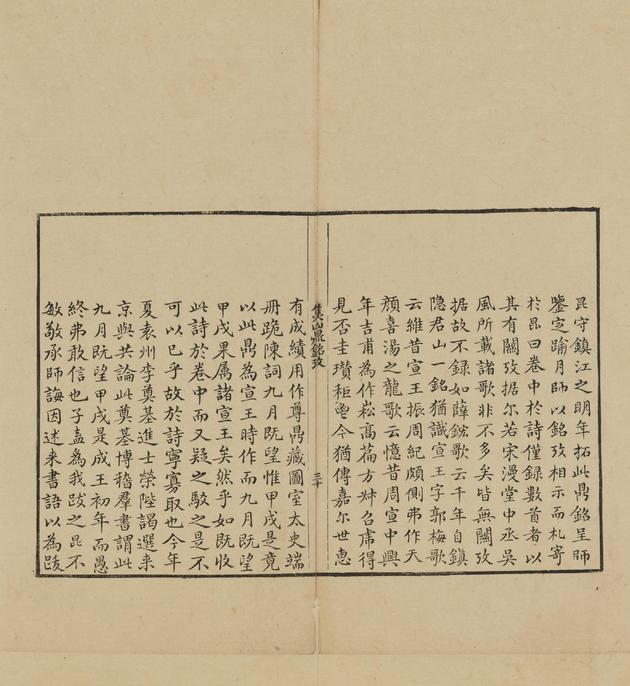 昆守鎮江之明年拓此鼎銘呈師
鑒定踰月師以銘攷相示而札寄
於昆曰卷中於詩僅録數首者以
其有關攷据尔若宋漫堂中丞吳
風所載諸歌非不多矣皆無關攷
據故不録如薛鋐歌云千年自鎮
隐君山一銘猶識宣王字郭梅歌
云維昔宣王振周紀頗側弗作天
顔喜湯之龍歌云憶昔周宣中興
年吉甫為作崧高篇方叔召虎得
見否圭瓚秬鬯今猶傳嘉尔世惠
焦山鼎銘攷
三十
有成績用作尊鼎藏圖室太史端
冊跪陳詞九月既望惟甲戌是竟
以此鼎為宣王時作而九月既望
甲戌果属諸宣王矣然乎如既收
此詩於卷中而又疑之駁之是不
可以已乎故於詩寧寡取也今年
夏袁州李奠基進士榮陛謁選来
京與共論此奠基博稽羣書謂此
九月既望甲戌是成王初年而愚
終弗敢信也子盍為我跋之昆不
敏敬承師誨因述来書語以為跋